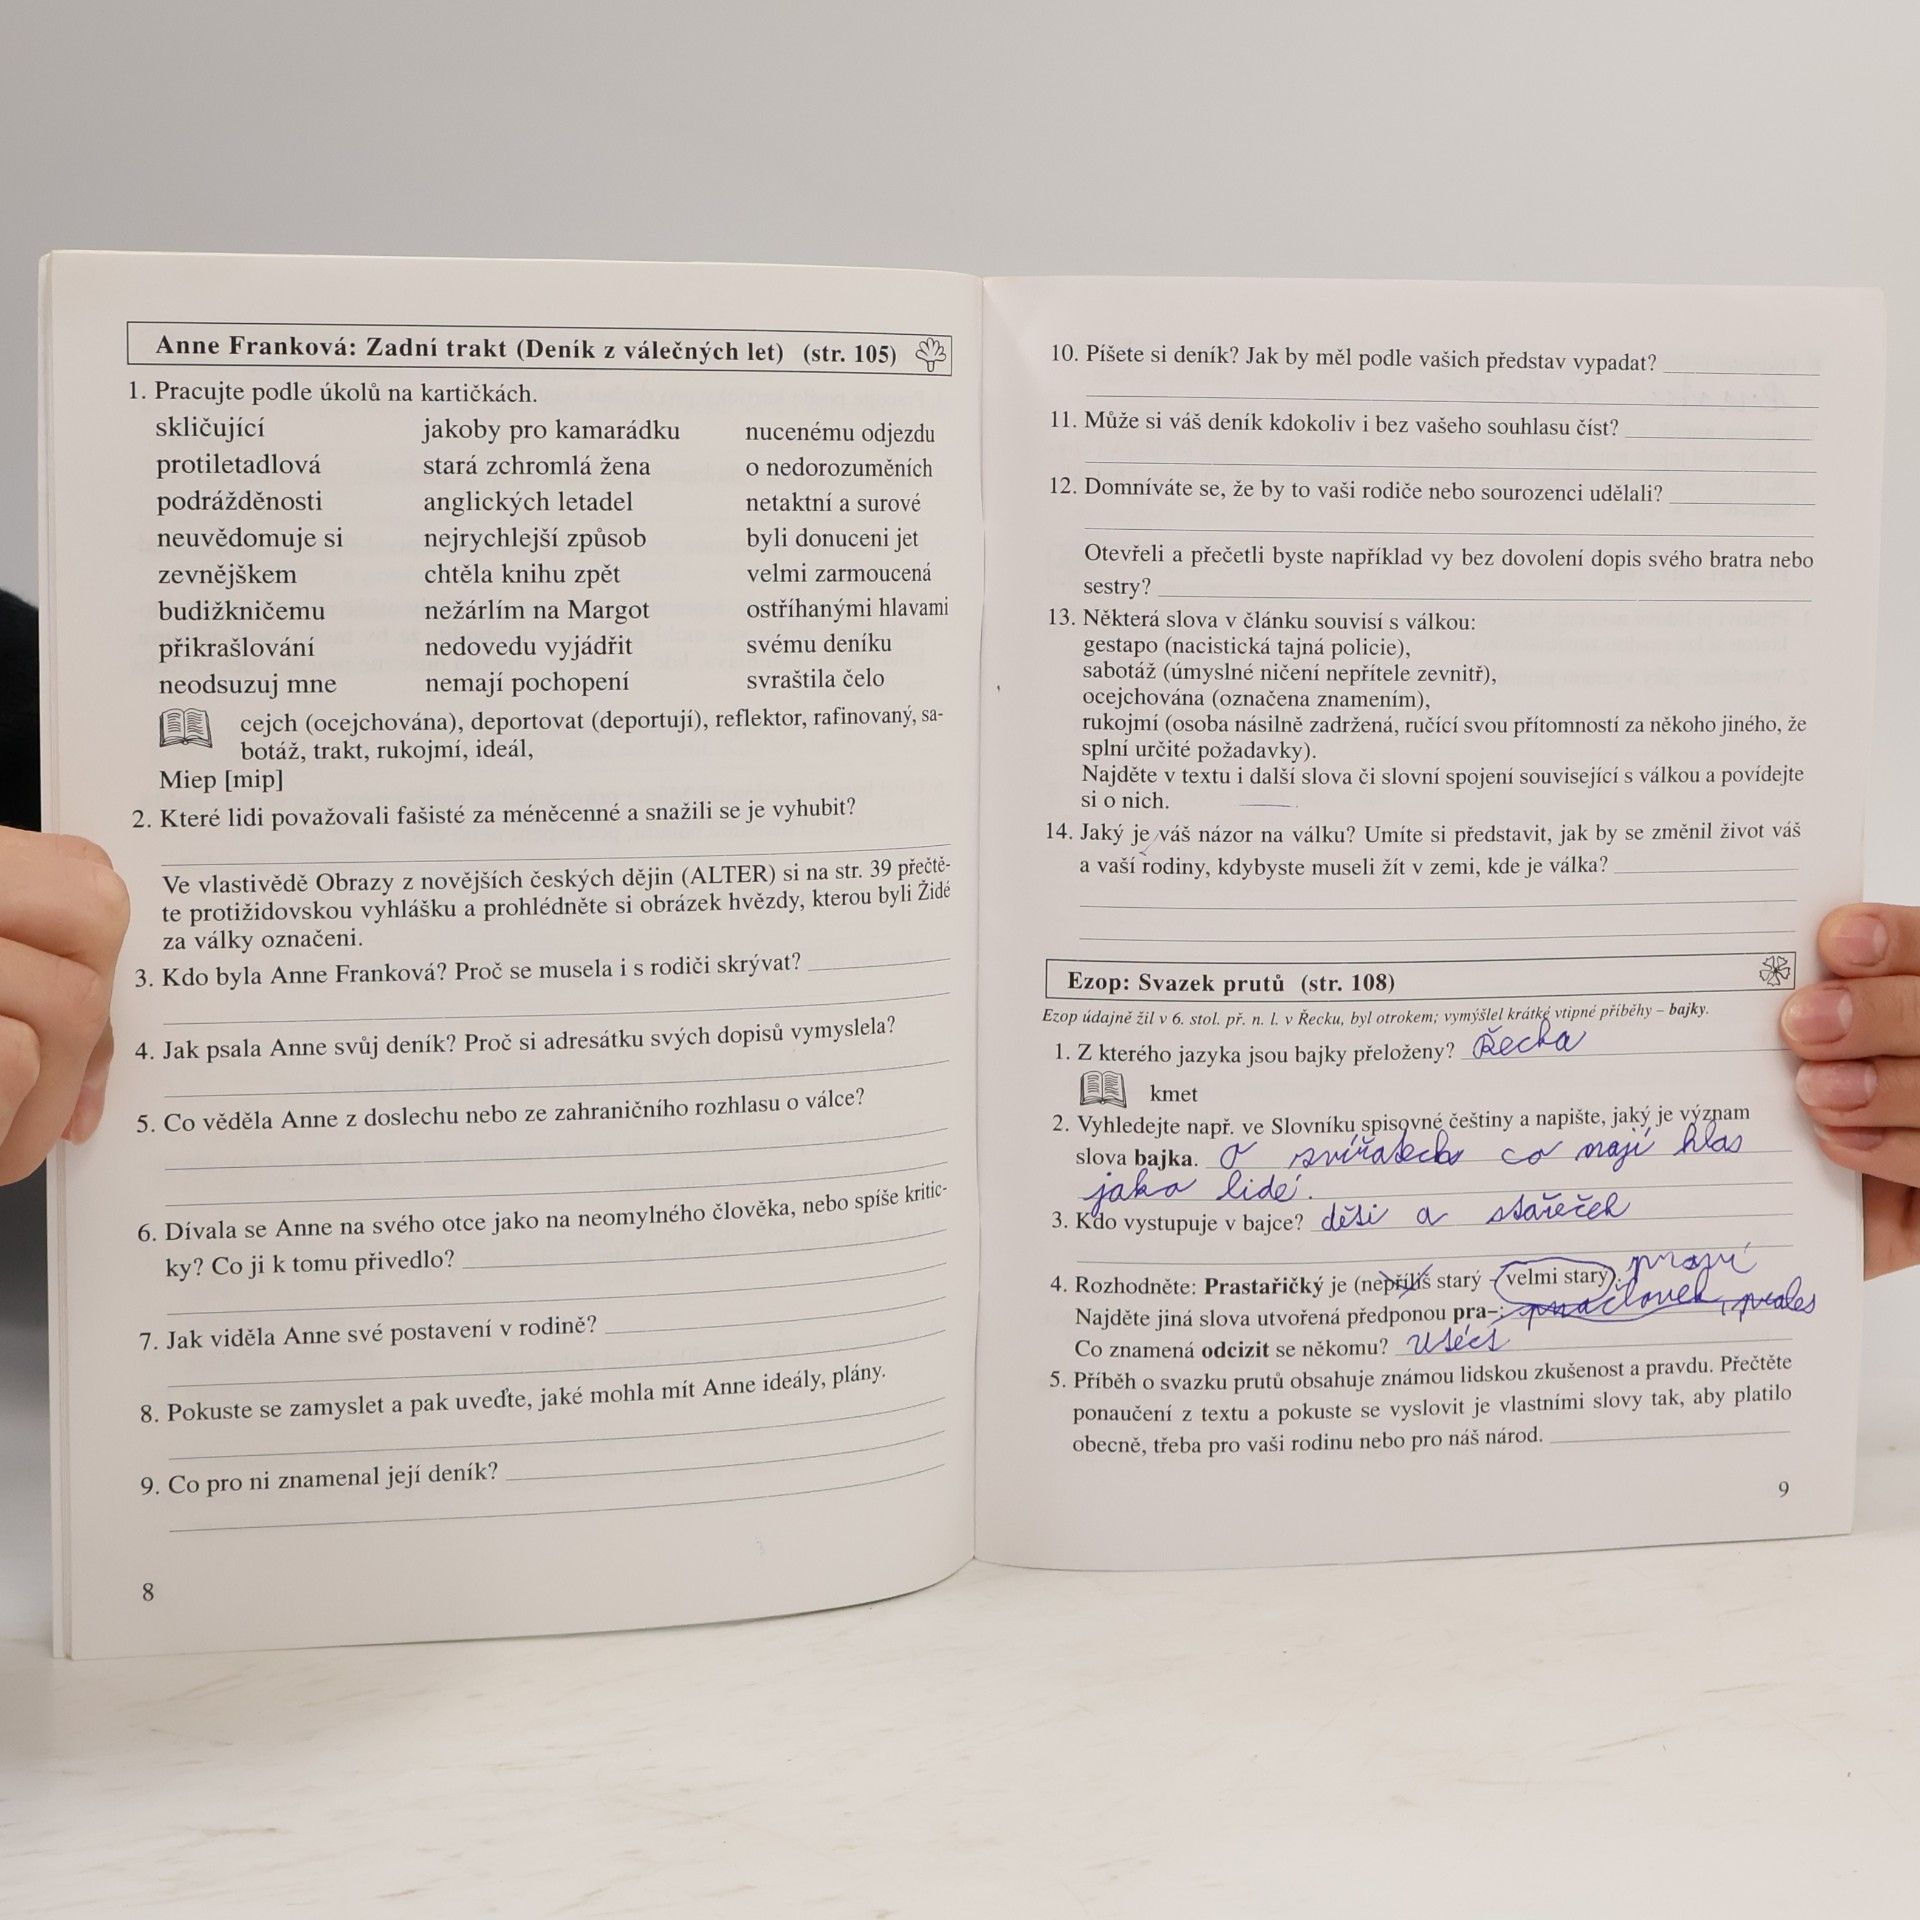 Anne Franková: Zadní trakt (Deník z válečných let) (str. 105)
1. Pracujte podle úkolů na kartičkách.
skličující jakoby pro kamarádku nucenému odjezdu
protiletadlová stará zchromlá žena o nedorozuměních
podrážděnosti anglických letadel netaktní a surové
neuvědomuje si nejrychlejší způsob byli donuceni jet
zevnějškem chtěla knihu zpět velmi zarmoucená
budižkničemu nežárlím na Margot ostříhanými hlavami
přikrašlování nedovedu vyjádřit svému deníku
neodsuzuj mne nemají pochopení svraštila čelo
cejch (ocejchována), deportovat (deportují), reflektor, rafinovaný, sa-
botáž, trakt, rukojmí, ideál,
Miep [mip]
2. Které lidi považovali fašisté za méněcenné a snažili se je vyhubit?
Ve vlastivědě Obrazy z novějších českých dějin (ALTER) si na str. 39 přečtě-
te protižidovskou vyhlášku a prohlédněte si obrázek hvězdy, kterou byli Židé
za války označeni.
3. Kdo byla Anne Franková? Proč se musela i s rodiči skrývat?
4. Jak psala Anne svůj deník? Proč si adresátku svých dopisů vymyslela?
5. Co věděla Anne z doslechu nebo ze zahraničního rozhlasu o válce?
6. Dívala se Anne na svého otce jako na neomylného člověka, nebo spíše kritic-
ky? Co ji k tomu přivedlo?
7. Jak viděla Anne své postavení v rodině?
8. Pokuste se zamyslet a pak uveďte, jaké mohla mít Anne ideály, plány.
9. Co pro ni znamenal její deník?
8
10. Píšete si deník? Jak by měl podle vašich představ vypadat?
11. Může si váš deník kdokoliv i bez vašeho souhlasu číst?
12. Domníváte se, že by to vaši rodiče nebo sourozenci udělali?
Otevřeli a přečetli byste například vy bez dovolení dopis svého bratra nebo
sestry?
13. Některá slova v článku souvisí s válkou:
gestapo (nacistická tajná policie),
sabotáž (úmyslné ničení nepřítele zevnitř),
ocejchována (označena znamením),
rukojmí (osoba násilně zadržená, ručící svou přítomností za někoho jiného, že
splní určité požadavky).
Najděte v textu i další slova či slovní spojení související s válkou a povídejte
si o nich.
14. Jaký je váš názor na válku? Umíte si představit, jak by se změnil život váš
a vaší rodiny, kdybyste museli žít v zemi, kde je válka?
Ezop: Svazek prutů (str. 108)
Ezop údajně žil v 6. stol. př. n. l. v Řecku, byl otrokem; vymýšlel krátké vtipné příběhy – bajky.
1. Z kterého jazyka jsou bajky přeloženy? Řecka
kmet
2. Vyhledejte např. ve Slovníku spisovné češtiny a napište, jaký je význam
slova bajka. O svířatech co mají hlas
jako lidé.
3. Kdo vystupuje v bajce? děti a stařeček
4. Rozhodněte: Prastařičký je (nepříliš starý – velmi starý).
Najděte jiná slova utvořená předponou pra–: pračlovek, prales
Co znamená odcizit se někomu? utéct
5. Příběh o svazku prutů obsahuje známou lidskou zkušenost a pravdu. Přečtěte
ponaučení z textu a pokuste se vyslovit je vlastními slovy tak, aby platilo
obecně, třeba pro vaši rodinu nebo pro náš národ.
9